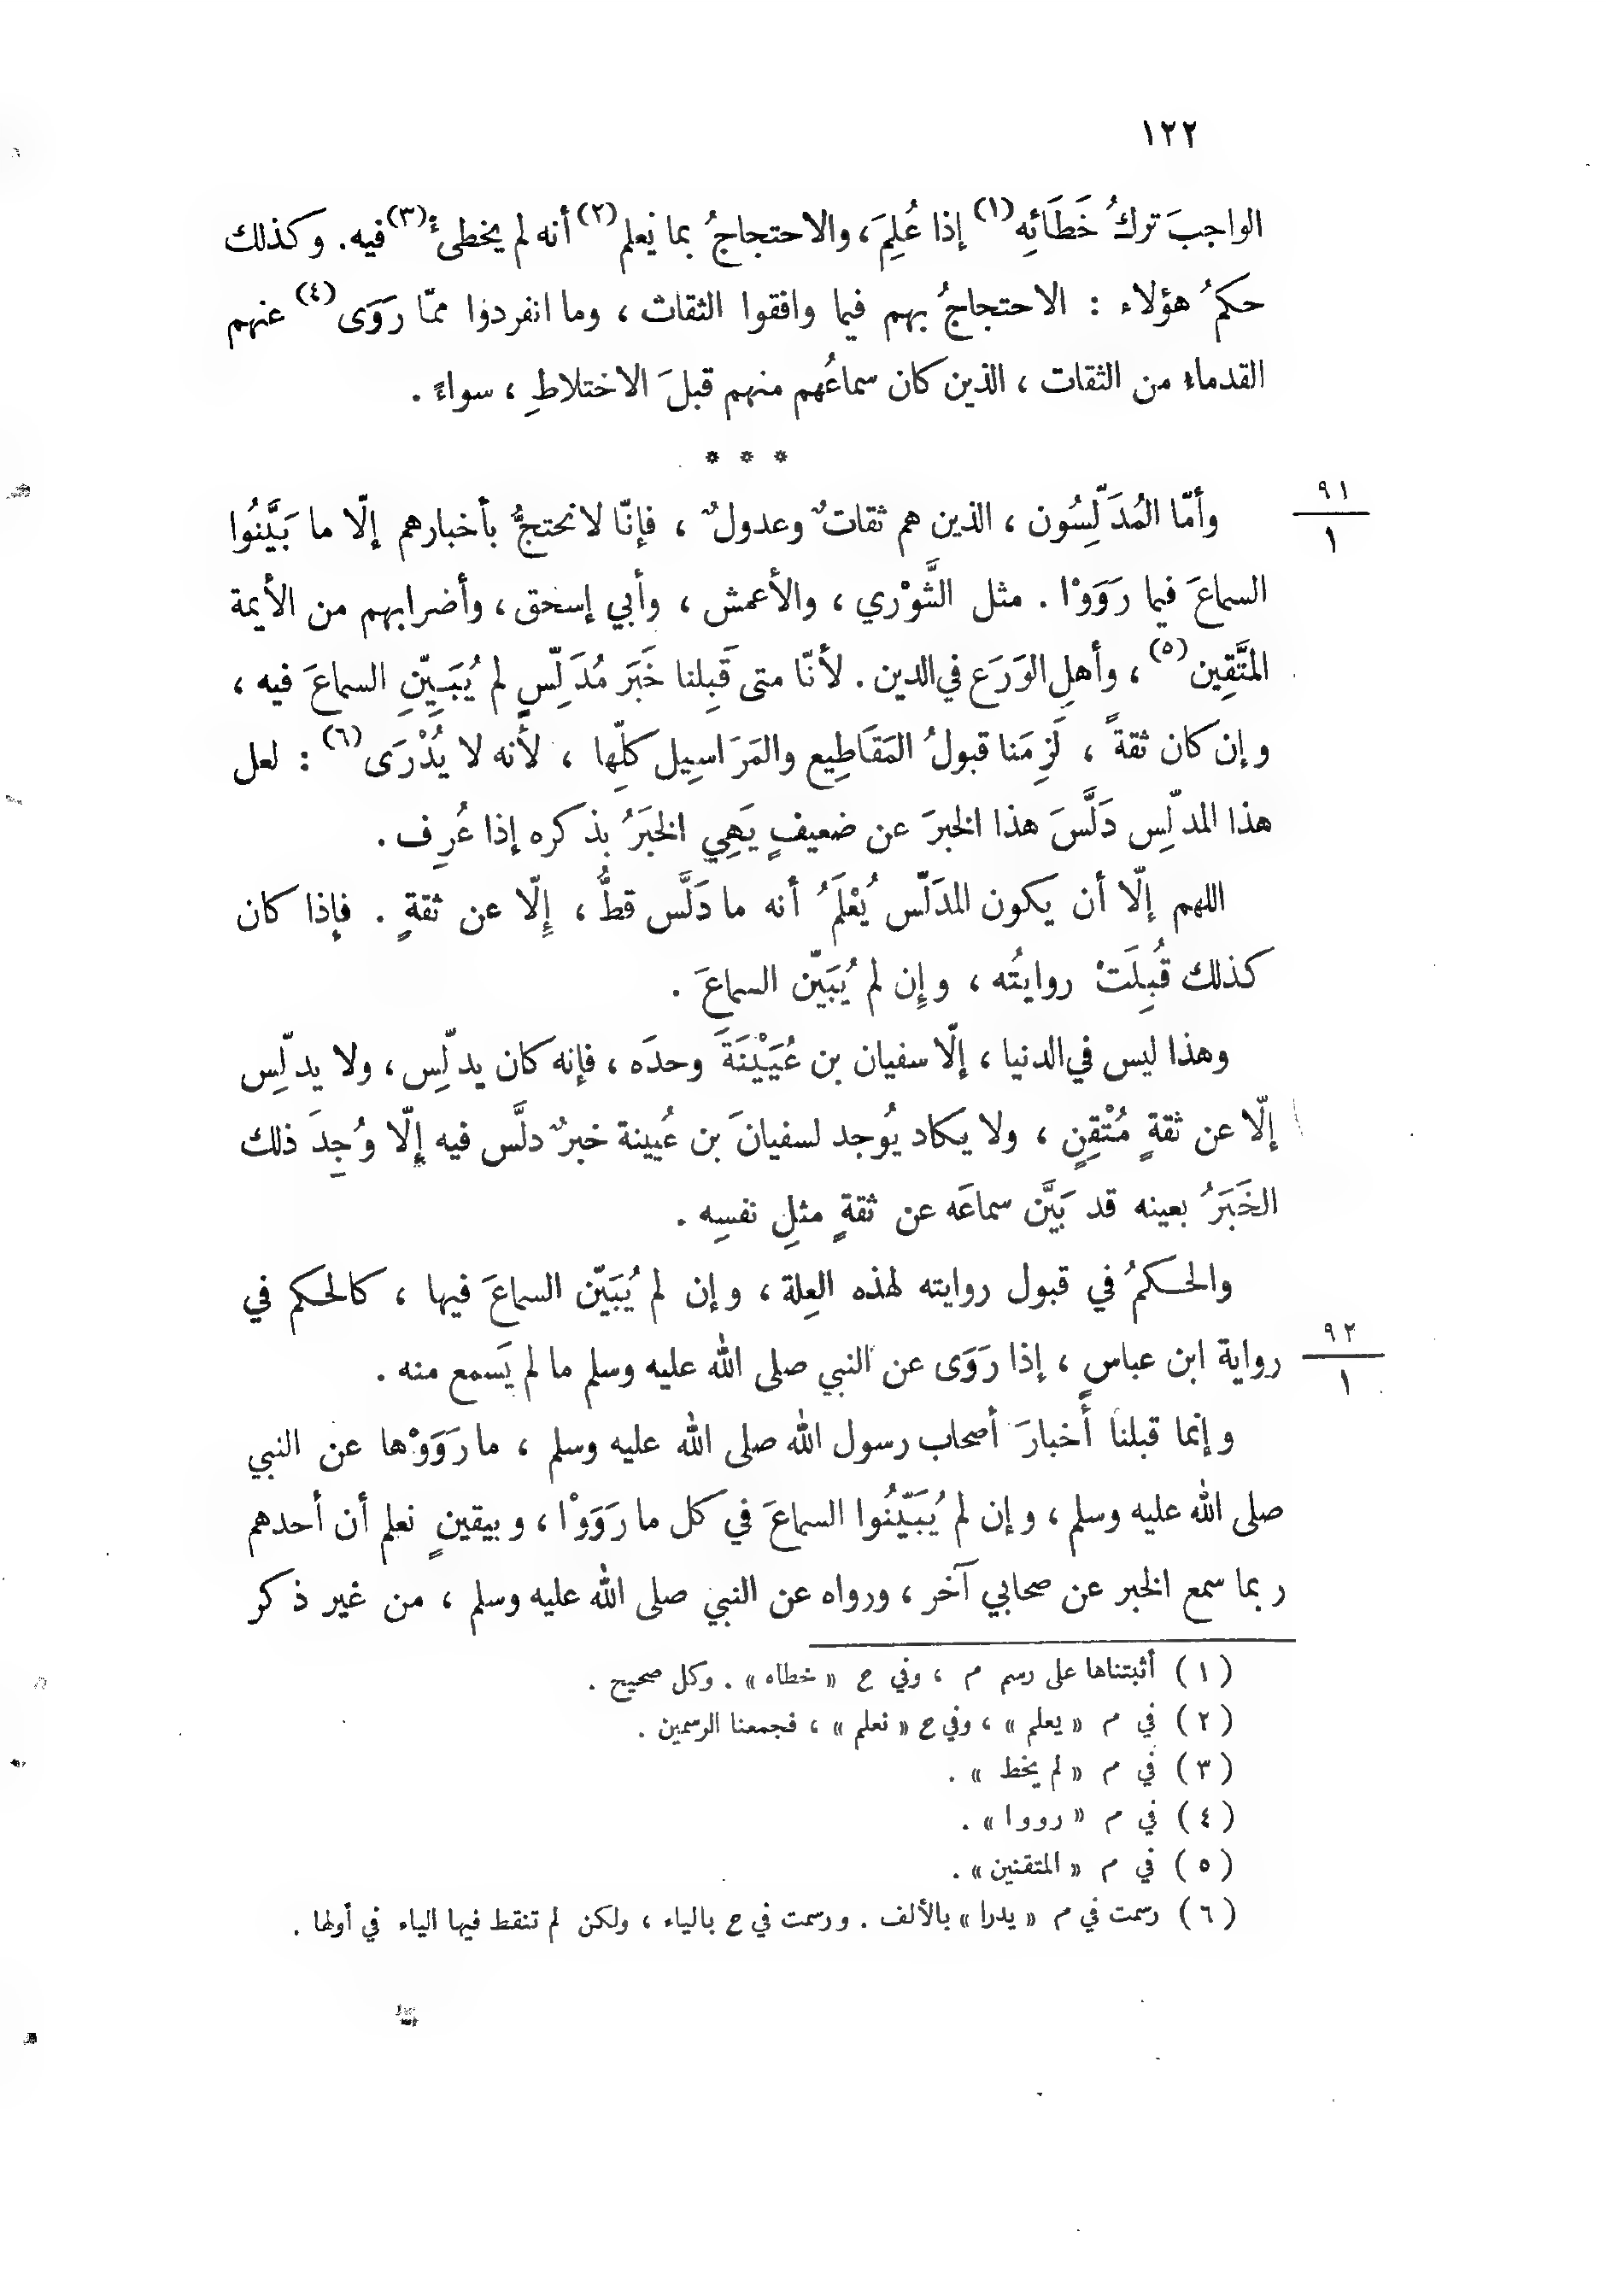 ١٢٢
الواجبَ تركُ خَطَائِه(١) إذا عُلِمَ، والاحتجاجُ بما نعلم(٢) أنه لم يخطىءْ(٣) فيه. وكذلك
حكمُ هؤلاء : الاحتجاجُ بهم فيما وافقوا الثقات ، وما انفردوا ممّا رَوَى(٤) عنهم
القدماء من الثقات ، الذين كان سماعُهم منهم قبلَ الاختلاطِ ، سواءً .
* * *
٩١
١
وأمّا المُدَلِّسُون ، الذين هم ثقاتٌ وعدولٌ ، فإنّا لا نحتجُّ بأخبارهم إلّا ما بَيَّنُوا
السماعَ فيما رَوَوْا . مثل الثَّوْري ، والأعمش ، وأبي إسحق ، وأضرابهم من الأيمة
المتَّقِين(٥) ، وأهلِ الوَرَع في الدين . لأنّا متى قَبِلنا خَبَر مُدَلِّسٍ لم يُبَيِّنِ السماعَ فيه ،
وإن كان ثقةً ، لَزِمَنا قبولُ المَقَاطِيع والمَرَاسِيل كلِّها ، لأنه لا يُدْرَى(٦) : لعل
هذا المدلِّس دَلَّسَ هذا الخبرَ عن ضعيفٍ يَهِي الخبَرُ بذكره إذا عُرِف .
اللهم إلّا أن يكون المدَلِّس يُعْلَمُ أنه ما دَلَّس قطُّ ، إلّا عن ثقةٍ . فإذا كان
كذلك قُبِلَتْ روايتُه ، وإن لم يُبَيِّن السماعَ .
وهذا ليس في الدنيا ، إلّا سفيان بن عُيَيْنَةَ وحدَه ، فإنه كان يدلِّس ، ولا يدلِّس
إلّا عن ثقةٍ مُتْقِنٍ ، ولا يكاد يُوجد لسفيانَ بن عُيينة خبرٌ دلَّس فيه إلّا وُجِدَ ذلك
الخَبَرُ بعينه قد بَيَّن سماعَه عن ثقةٍ مثلِ نفسِه .
والحكمُ في قبول روايته لهذه العِلة ، وإن لم يُبَيِّن السماعَ فيها ، كالحكم في
٩٢
١
رواية ابن عباسٍ ، إذا رَوَى عن النبي صلى الله عليه وسلم ما لم يَسمع منه .
وإنما قبلنا أخبارَ أصحاب رسول الله صلى الله عليه وسلم ، ما رَوَوْها عن النبي
صلى الله عليه وسلم ، وإن لم يُبَيِّنُوا السماعَ في كل ما رَوَوْا ، وبيقينٍ نعلم أن أحدهم
ربما سمع الخبر عن صحابي آخر ، ورواه عن النبي صلى الله عليه وسلم ، من غير ذكر
(١) أثبتناها على رسم م ، وفي ح « خطاه » . وكل صحيح .
(٢) في م « يعلم » ، وفي ح « نعلم » ، فجمعنا الرسمين .
(٣) في م « لم يخط » .
(٤) في م « رووا » .
(٥) في م « المتقنين » .
(٦) رسمت في م « يدرا » بالألف . ورسمت في ح بالياء ، ولكن لم تنقط فيها الياء في أولها .